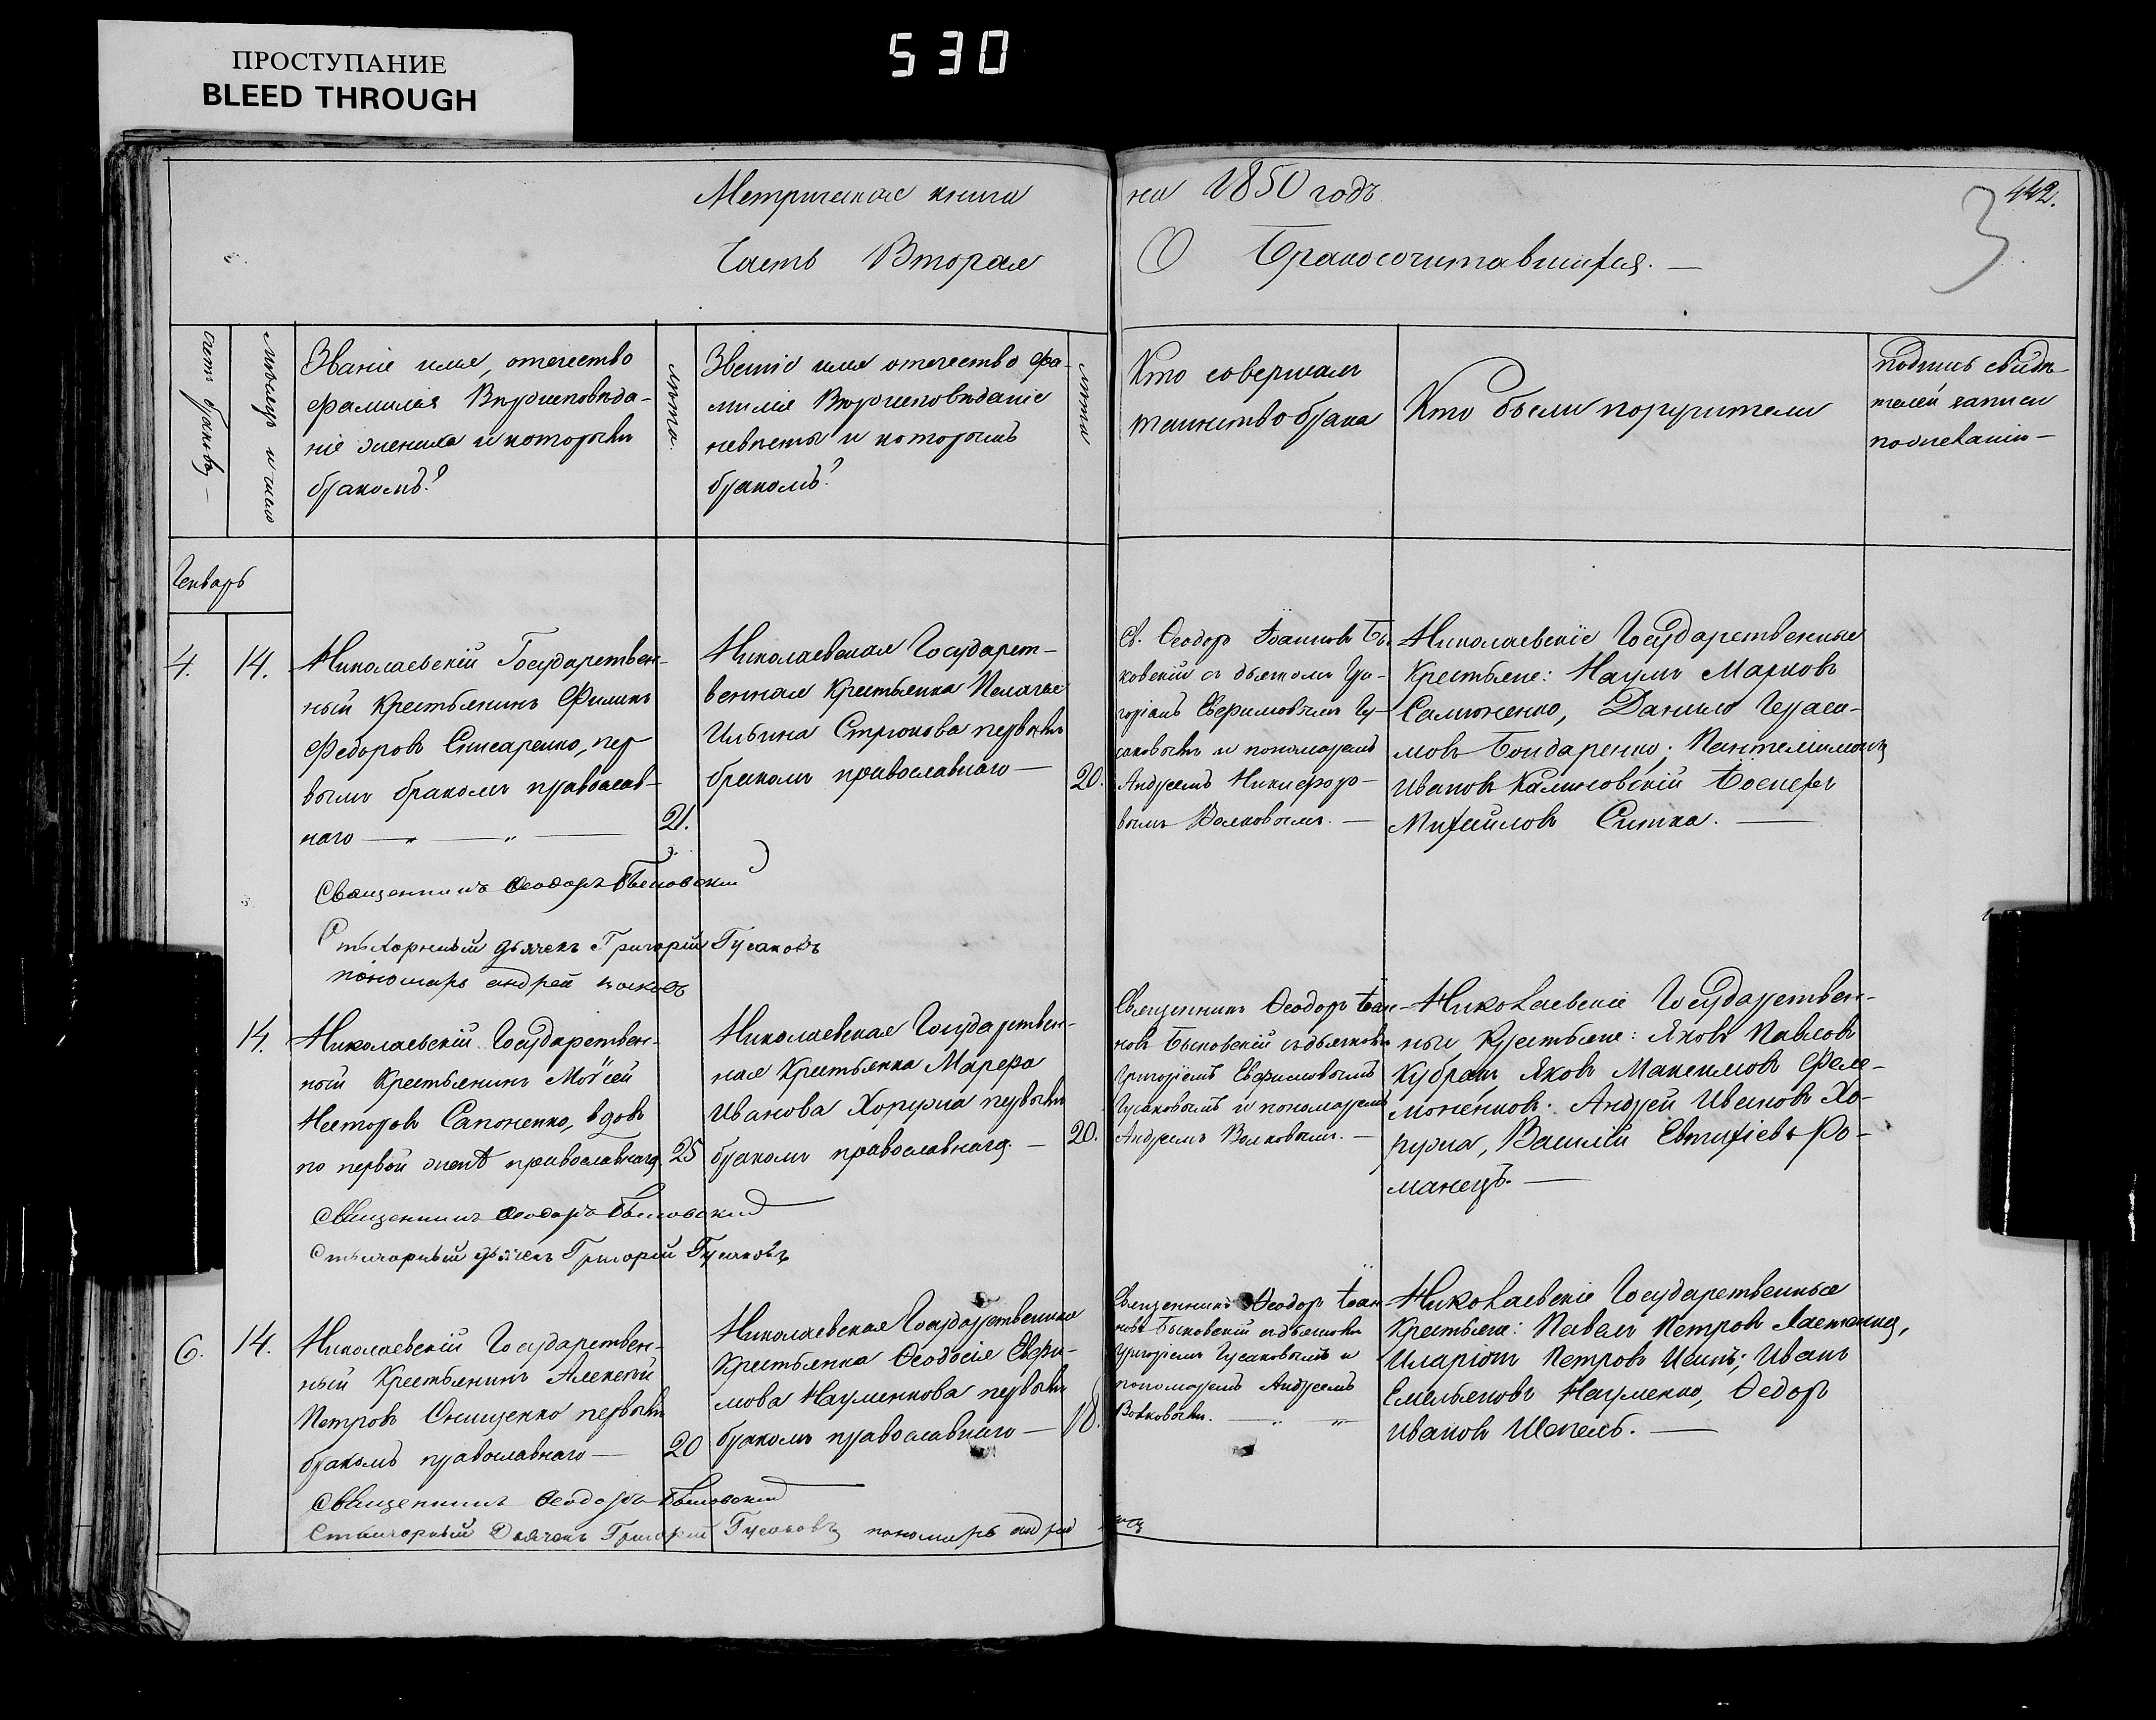 ПРОСТУПАНИЕ
BLEED THROUGH
530
Метрическая книга
на 1850 годъ
442.
3
Часть Вторая
О Бракосочитавшихся. —
счетъ браковъ —
Мѣсяцъ и число
Званіе имя, отечество
фамилія Вѣроисповѣда-
ніе жениха и которымъ
бракомъ?
лѣта.
Званіе имя отечество фа-
милія Вѣроисповѣданіе
невѣсты и которымъ
бракомъ?
лѣта
Кто совершалъ
таинство брака
Кто были поручители
подпись свидѣ-
телей записи
по желанію —
Генварь
4.
14.
Николаевскій Государствен-
ный Крестьянинъ Филипъ
Федоровъ Снисаренко, пер-
вымъ бракомъ православ-
наго — „ — „ —
21.
Николаевская Государст-
венная Крестьянка Пелагея
Ильина Стрюкова первымъ
бракомъ православнаго —
20.
Св. Ѳеодоръ Іоанновъ Бы-
ковскій съ дьячкомъ Гри-
горіемъ Евфимовымъ Гу-
саковымъ и пономаремъ
Андреемъ Никифоро-
вымъ Волковымъ. —
Николаевскіе Государственные
Крестьяне: Наумъ Марковъ
Самоненко, Данило Гераси-
мовъ Бондаренко; Пантелимонъ
Ивановъ Калиновскій Іосифъ
Михайловъ Ситка. —
Священникъ Ѳеодоръ Быковскій
Стихарный дьячекъ Григорій Гусаковъ
пономарь андрей волковъ
14.
Николаевскій Государствен-
ный Крестьянинъ Моѵсей
Несторовъ Сапоненко, вдовъ
по первой женѣ православнаго.
25
Николаевская Государствен-
ная Крестьянка Марѳа
Иванова Хоружа первымъ
бракомъ православнаго. —
20.
Священникъ Ѳеодоръ Іоан-
новъ Быковскій съ дьячкомъ
Григоріемъ Евфимовымъ
Гусаковымъ и пономаремъ
Андреемъ Волковымъ. —
Николаевскіе Государствен-
ные Крестьяне: Яковъ Павловъ
Кубракъ, Яковъ Максимовъ Филе-
моненковъ. Андрей Ивановъ Хо-
ружа, Василій Евтихіевъ Ро-
манецъ. —
Священникъ Ѳеодоръ Быковскій
Стихарный дьячекъ Григорій Гусаковъ
6.
14.
Николаевскій Государствен-
ный Крестьянинъ Алексѣй
Петровъ Онищенко первымъ
бракомъ православнаго —
20
Николаевская Государственная
Крестьянка Ѳеодосія Евфи-
мова Науменкова первымъ
бракомъ православнаго —
18.
Священникъ Ѳеодоръ Іоан-
новъ Быковскій съ дьячкомъ
Григоріемъ Гусаковымъ и
пономаремъ Андреемъ
Волковымъ. — „ — „
Николаевскіе Государственные
Крестьяне: Павелъ Петровъ
Иларіонъ Петровъ Иванъ
Емельяновъ Науменко, Ѳедоръ
Ивановъ Шепель. —
Священникъ Ѳеодоръ Быковскій
Стихарный Дьячекъ Григорій Гусаковъ пономарь андрей